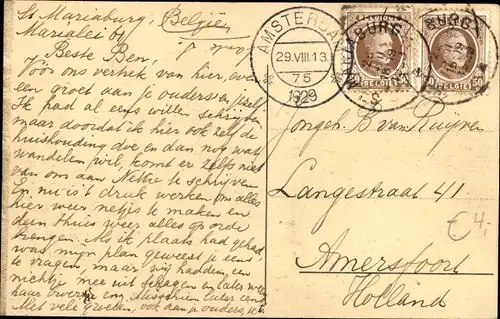 St Mariaburg, België
Marialei 64
Beste Ben,
Vóór ons vertrek van hier, even
een groet aan je ouders en jezelf
Ik had al eens willen schrijven
maar doordat ik hier ook zelf de
huishouding doe en dan nog wat
wandelen wil, komt er zelfs niet
van om aan Nettie te schrijven
En nu is 't druk werken om alles
hier weer netjes te maken en
dan thuis weer alles op orde
brengen. Als ik plaats had gehad,
was mijn plan geweest je eens
te vragen, maar wij hadden een
nichtje mee uit
haar Misschien later eens
Met vele groeten, ook aan je ouders,
AMSTERDAM
29.VIII.13
75
1929
BELGIË
BELGIË 50
Jongeh. B van Ruijven
Langestraat 41
€ 4,-
Amersfoort
Holland